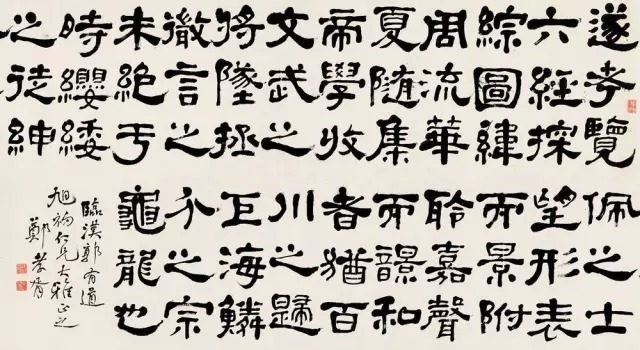 遂考覽
六經探
綜圖緯
周流華
夏隨集
帝學收
文武之
將墜拯
微言之
未絕于
時纓緌
之徒紳
佩之士
望形表
而景附
聆嘉聲
而韻和
者猶百
川之歸
巨海鱗
介之宗
龜龍也
臨漢郭有道
旭初仁兄大雅正之
鄭孝胥